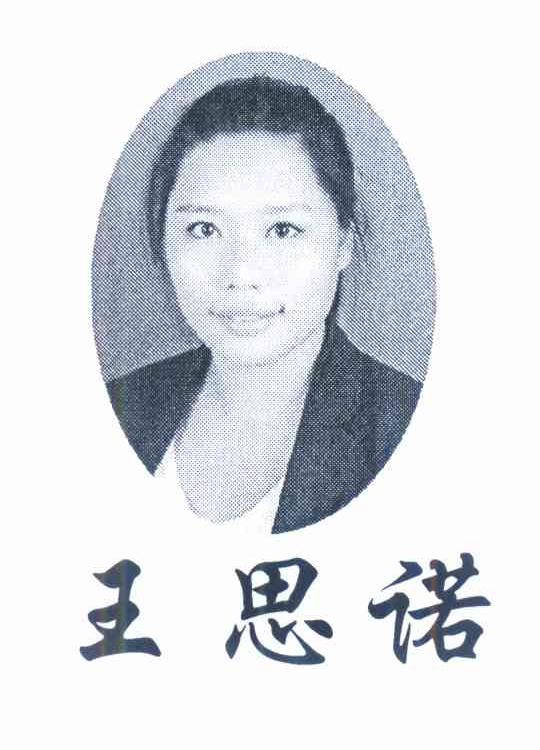 王思诺